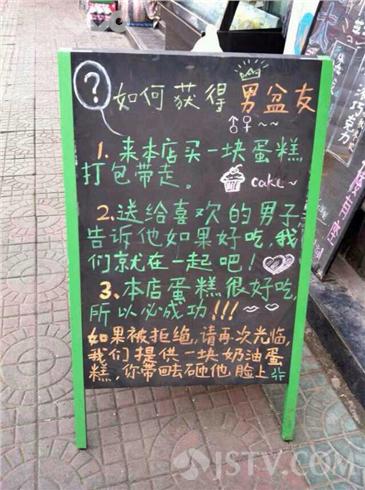 ?
如何获得男盆友
1. 来本店买一块蛋糕
打包带走。 cake~
2.送给喜欢的男子
告诉他如果好吃,我
们就在一起吧!
3、本店蛋糕很好吃,
所以必成功!!!
如果被拒绝,请再次光临,
我们提供一块奶油蛋
糕,你带回去砸他脸上
JSTV.COM